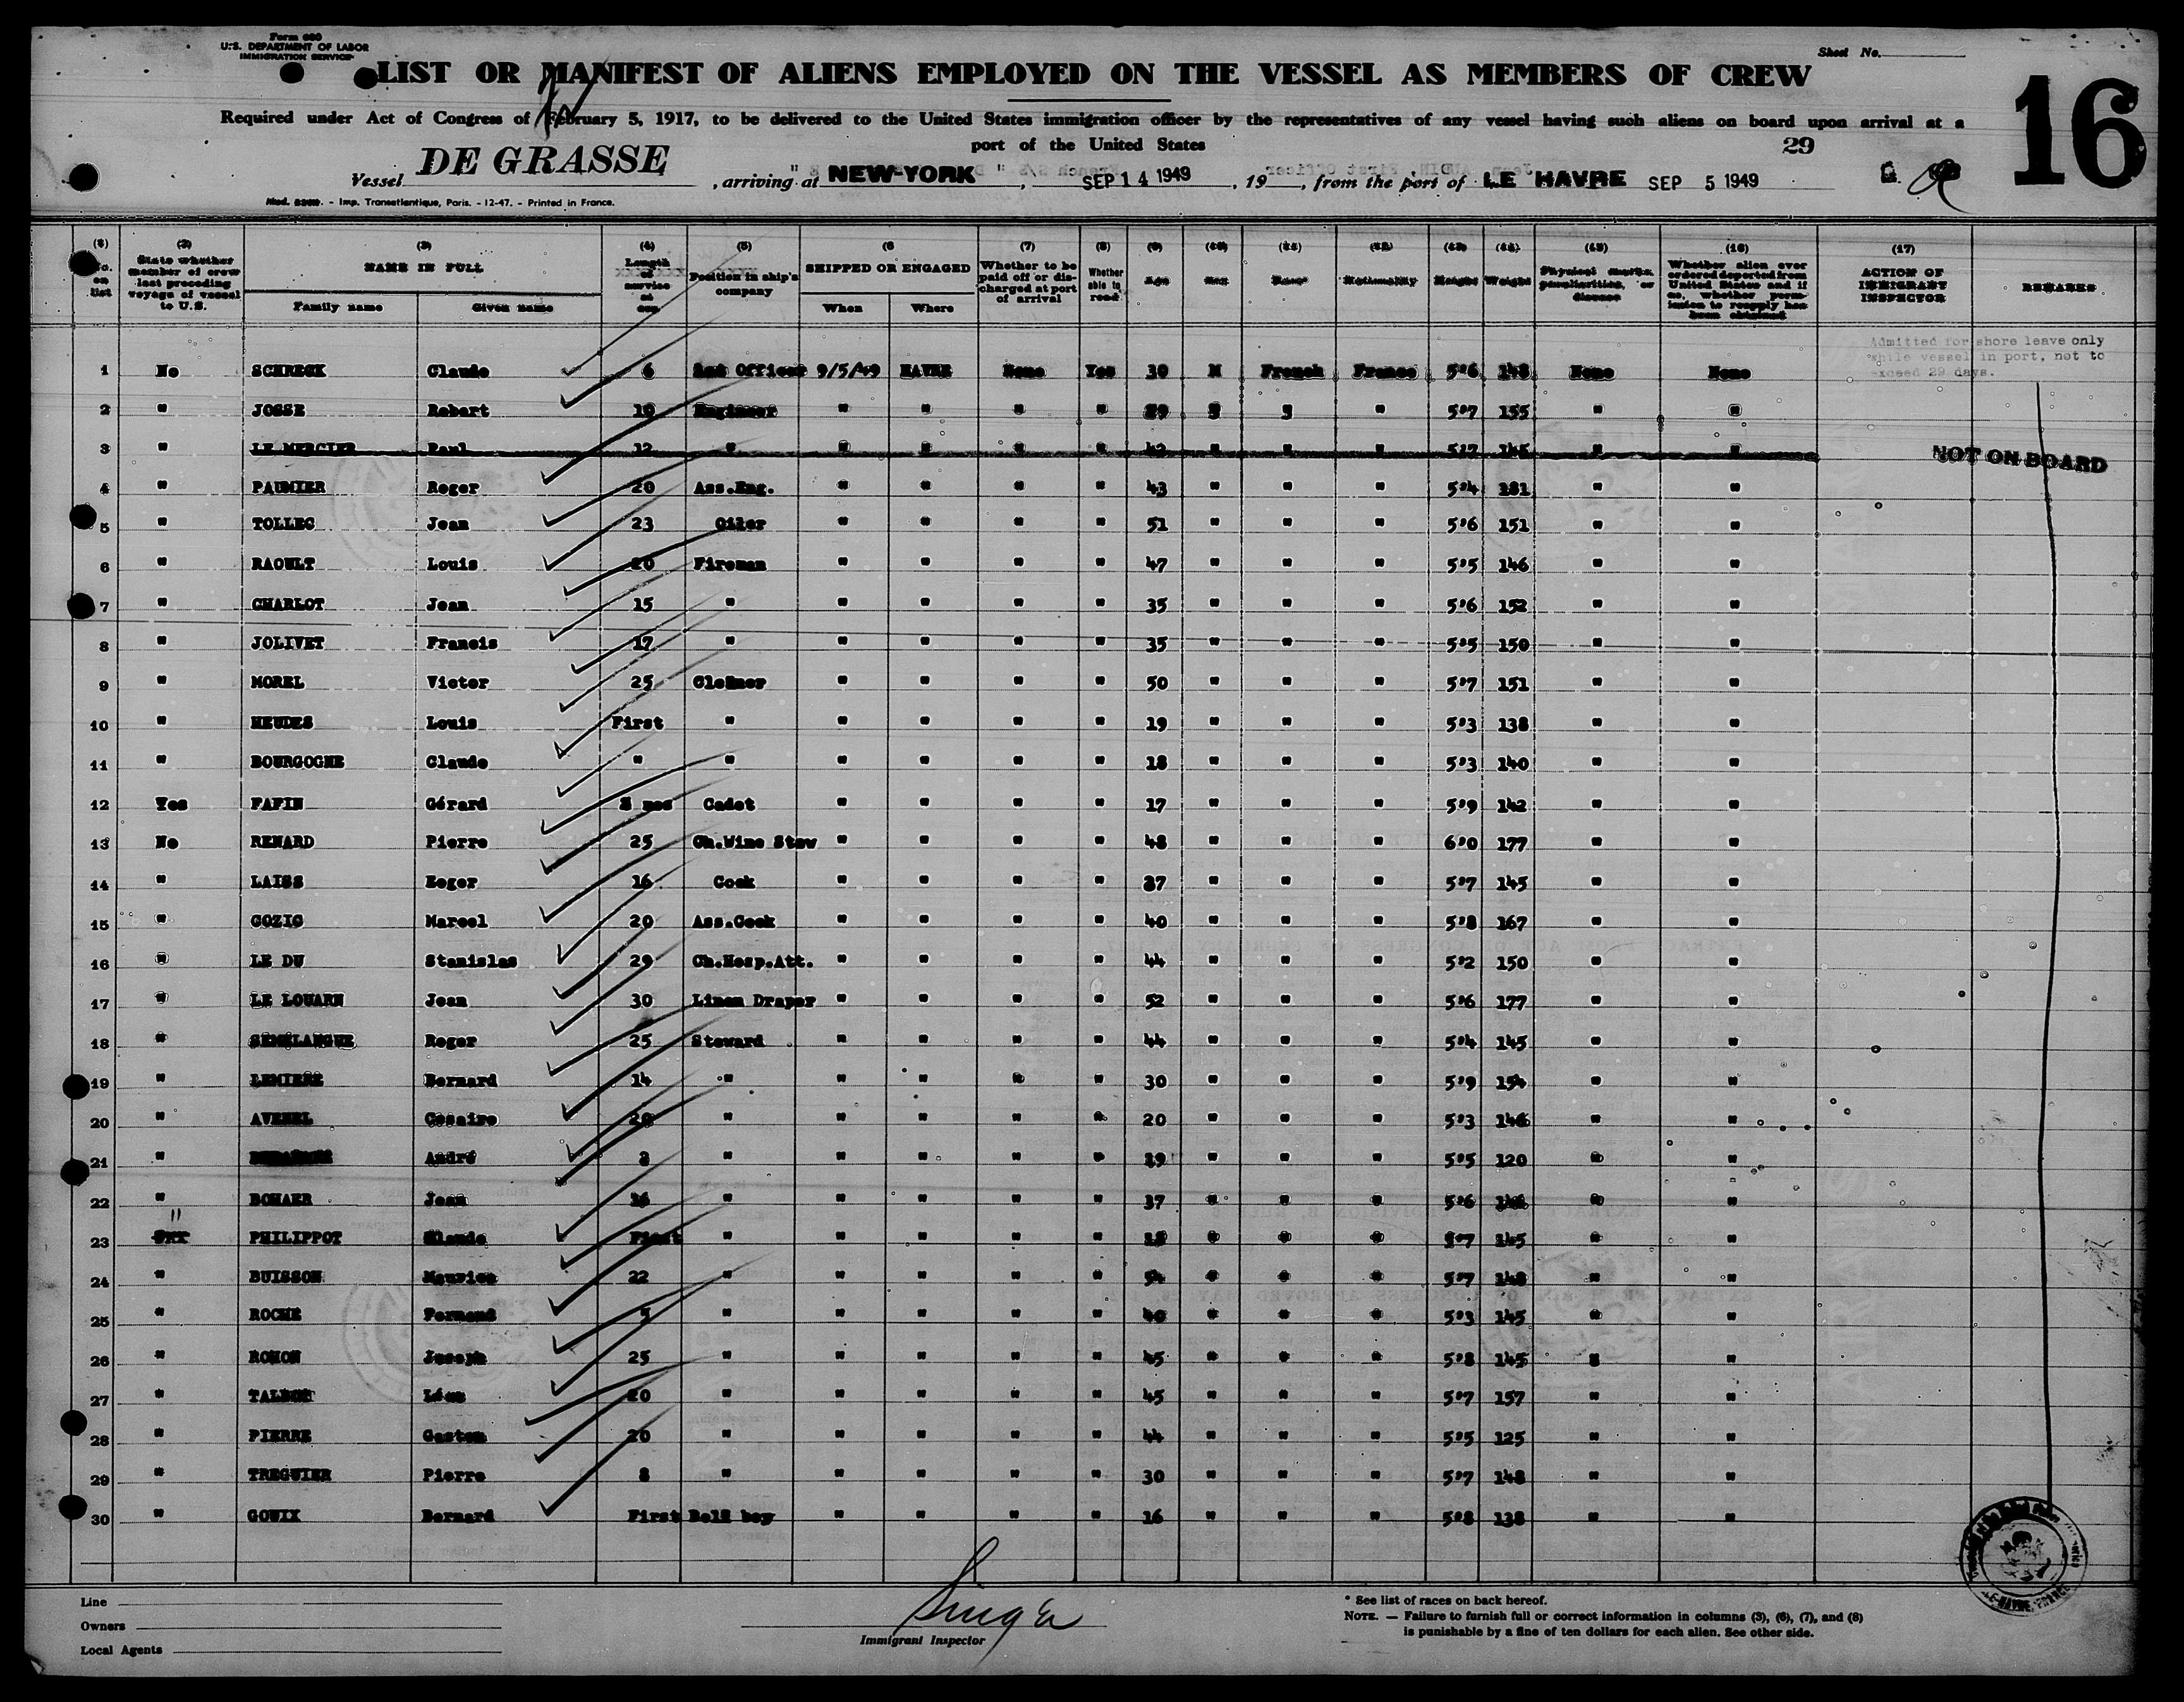 Form 680
U.S. DEPARTMENT OF LABOR
IMMIGRATION SERVICE
Sheet No.
LIST OR MANIFEST OF ALIENS EMPLOYED ON THE VESSEL AS MEMBERS OF CREW
16
Required under Act of Congress of February 5, 1917, to be delivered to the United States immigration officer by the representatives of any vessel having such aliens on board upon arrival at a
port of the United States
29
Vessel DE GRASSE, arriving at NEW-YORK, SEP 14 1949, 19, from the port of LE HAVRE SEP 5 1949
- Imp. Transatlantique, Paris. - 12-47. - Printed in France.
(1) No. on list (2) State whether member of crew last preceding voyage of vessel to U.S. (3) NAME IN FULL Family name Given name (4) Length of service at sea (5) Position in ship's company (6 SHIPPED OR ENGAGED When Where (7) Whether to be paid off or discharged at port of arrival (8) Whether able to read (9) Age (10) Sex (11) Race (12) Nationality (13) Height (14) Weight (15) Physical marks, peculiarities, or disease (16) Whether alien ever ordered deported from United States and if so, whether permission to reapply has been obtained (17) ACTION OF IMMIGRANT INSPECTOR REMARKS
Admitted for shore leave only
while vessel in port, not to
exceed 29 days.
1 No SCHRECK Claude 6 Officer 9/5/49 HAVRE None Yes 30 M French France 5"6 148 None None
2 " JOSSE Robert 10 Engineer " " " " " 5"7 155 " "
3 " LE MERCIER Paul 12 " " " " " 42 " " " 5"7 145 " " NOT ON BOARD
4 " PAUMIER Roger 20 Ass.Eng. " " " " 43 " " " 5"4 181 " "
5 " TOLLEC Jean 23 Oiler " " " " 51 " " " 5"6 151 " "
6 " RAOULT Louis 20 Fireman " " " " 47 " " " 5"5 146 " "
7 " CHARLOT Jean 15 " " " " " 35 " " " 5"6 152 " "
8 " JOLIVET Francis 17 " " " " " 35 " " " 5"5 150 " "
9 " MOREL Victor 25 Cleaner " " " " 50 " " " 5"7 151 " "
10 " HEUDES Louis First " " " " " 19 " " " 5"3 138 " "
11 " BOURGOGNE Claude " " " " " " 18 " " " 5"3 140 " "
12 Yes FAFIN Gérard mos Cadet " " " " 17 " " " 5"9 142 " "
13 No RENARD Pierre 25 Ch.Wine Stew " " " " 48 " " " 6"0 177 " "
14 " LAISS Roger 16 Cook " " " " 37 " " " 5"7 145 " "
15 " GOZIG Marcel 20 Ass.Cook " " " " 40 " " " 5"8 167 " "
16 " LE DU Stanislas 29 Ch.Hosp.Att. " " " " 44 " " " 5"2 150 " "
17 " LE LOUARN Jean 30 Linen Draper " " " " 52 " " " 5"6 177 " "
18 " SEMELANGUE Roger 25 Steward " " " " 44 " " " 5"4 145 " "
19 " LEMIERE Bernard 14 " " " " " 30 " " " 5"9 154 " "
20 " AVENEL Cesaire " " " " " 20 " " " 5"3 146 " "
21 " André " " " " " " " " 5"5 120 " "
22 " BOHAER Jean " " " " " 37 " " " 5"6 " "
23 " PHILIPPOT Claude First " " " " " " " " 5"7 145 " "
24 " BUISSON Maurice 22 " " " " " 54 " " " 5"7 148 " "
25 " ROCHE Fernand 5 " " " " " 40 " " " 5"3 145 " "
26 " ROMON Joseph 25 " " " " " 45 " " " 5"8 145 "
27 " TALBOT Léon 20 " " " " " 45 " " " 5"7 157 " "
28 " PIERRE Gaston 20 " " " " " 44 " " " 5"5 125 " "
29 " TREGUIER Pierre 8 " " " " " 30 " " " 5"7 148 " "
30 " GOUIX Bernard First Bell boy " " " " 16 " " " 5"8 138 " "
Line
Owners
Local Agents
Immigrant Inspector
* See list of races on back hereof.
NOTE. — Failure to furnish full or correct information in columns (3), (6), (7), and (8)
is punishable by a fine of ten dollars for each alien. See other side.